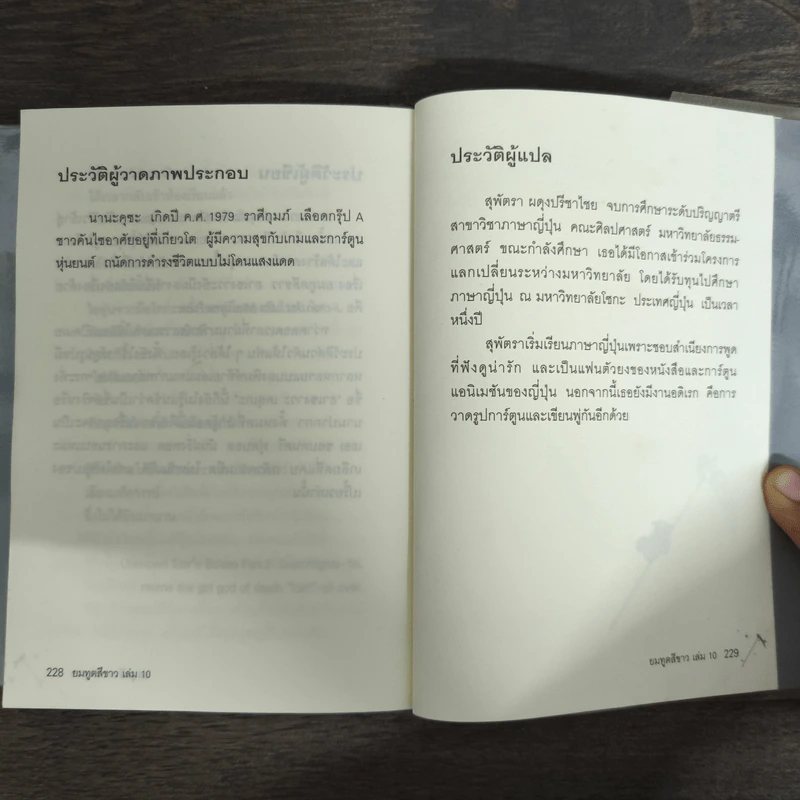 ประวัติผู้วาดภาพประกอบ
นานะคุซะ เกิดปี ค.ศ. 1979 ราศีกุมภ์ เลือดกรุ๊ป A
ชาวคันไซอาศัยอยู่ที่เกียวโต ผู้มีความสุขกับเกมและการ์ตูน
หุ่นยนต์ ถนัดการดำรงชีวิตแบบไม่โดนแสงแดด
228 ยมทูตสีขาว เล่ม 10
ประวัติผู้แปล
สุพัตรา ผดุงปรีชาไชย จบการศึกษาระดับปริญญาตรี
สาขาวิชาภาษาญี่ปุ่น คณะศิลปศาสตร์ มหาวิทยาลัยธรรม-
ศาสตร์ ขณะกำลังศึกษา เธอได้มีโอกาสเข้าร่วมโครงการ
แลกเปลี่ยนระหว่างมหาวิทยาลัย โดยได้รับทุนไปศึกษา
ภาษาญี่ปุ่น ณ มหาวิทยาลัยโซกะ ประเทศญี่ปุ่น เป็นเวลา
หนึ่งปี
สุพัตราเริ่มเรียนภาษาญี่ปุ่นเพราะชอบสำเนียงการพูด
ที่ฟังดูน่ารัก และเป็นแฟนตัวยงของหนังสือและการ์ตูน
แอนิเมชันของญี่ปุ่น นอกจากนี้เธอยังมีงานอดิเรก คือการ
วาดรูปการ์ตูนและเขียนพู่กันอีกด้วย
ยมทูตสีขาว เล่ม 10 229